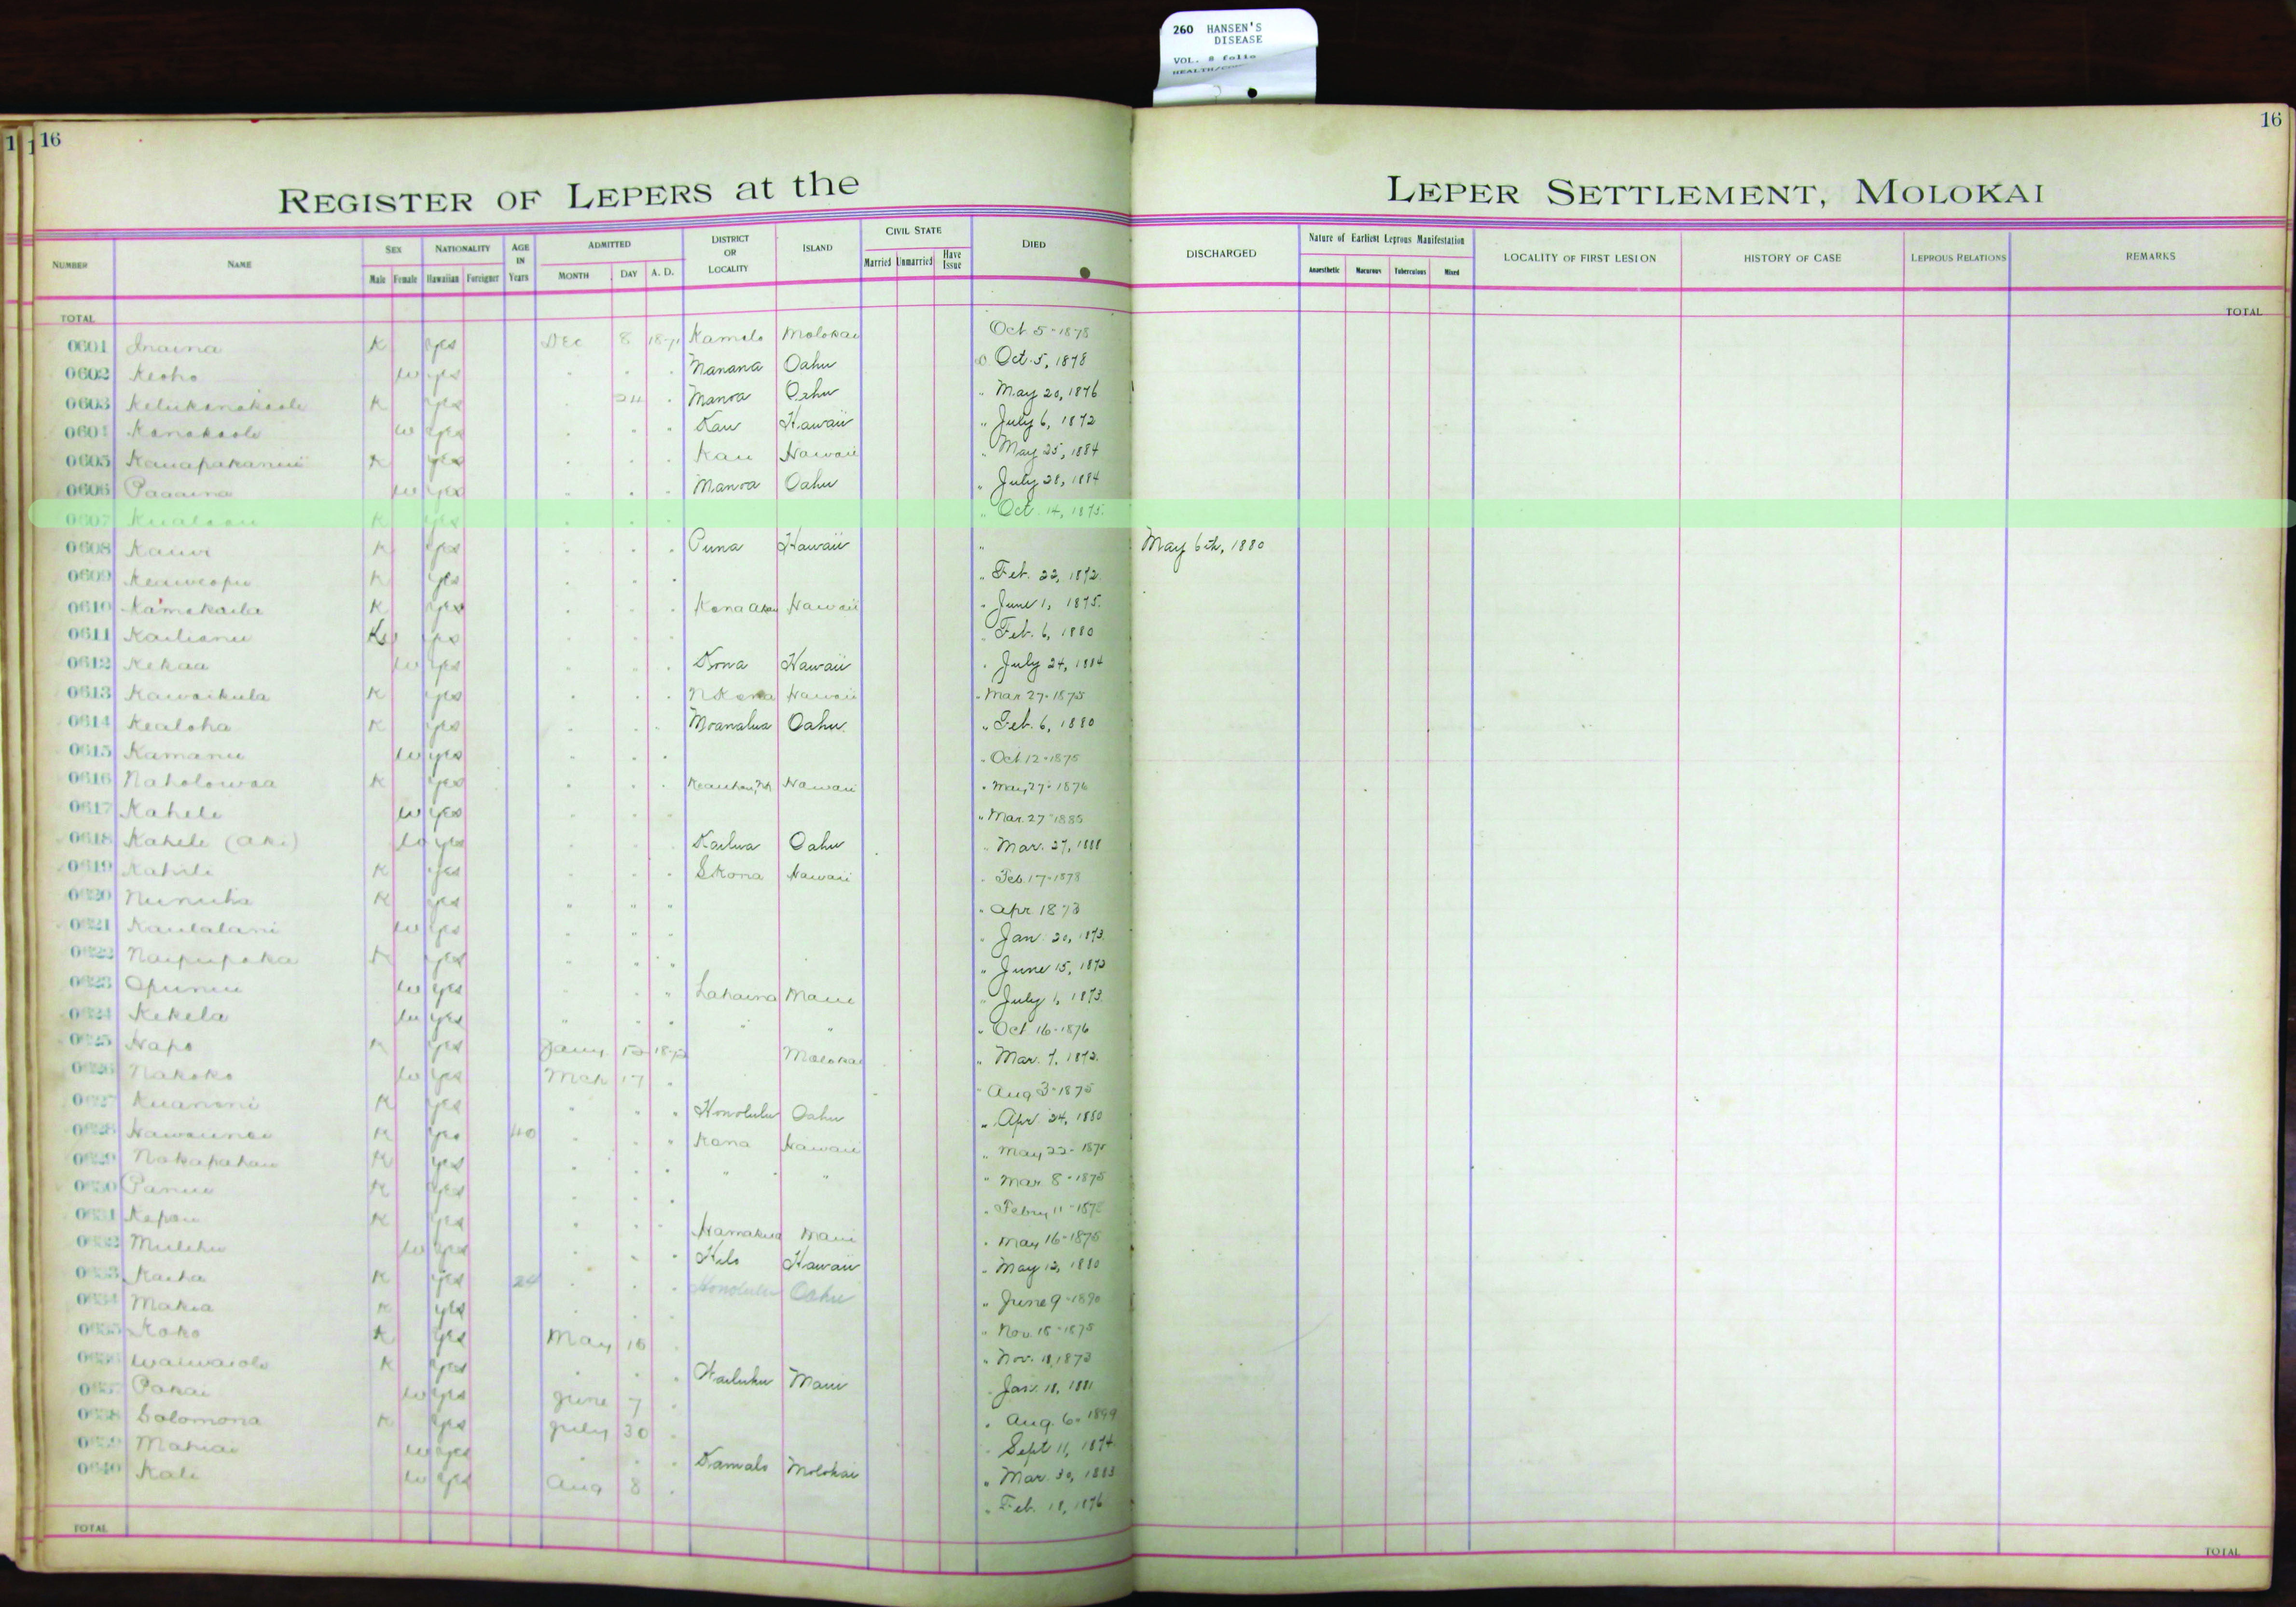 260 HANSEN'S
DISEASE
VOL. 8 folio
16
16
REGISTER OF LEPERS at the LEPER SETTLEMENT, MOLOKAI
NUMBER NAME SEX Male Female NATIONALITY Hawaiian Foreigner AGE IN Years ADMITTED MONTH DAY A. D. DISTRICT OR LOCALITY ISLAND CIVIL STATE Married Unmarried Have Issue DIED DISCHARGED Nature of Earliest Leprous Manifestation Anaesthetic Macurous Tuberculous Mixed LOCALITY OF FIRST LESION HISTORY OF CASE LEPROUS RELATIONS REMARKS
TOTAL TOTAL
0601 Inaina K yes Dec 8 1871 Kamalo Molokai Oct 5-1878
0602 Keoho w yes Manana Oahu Oct. 5, 1878
0603 K yes 24 Manoa Oahu " May 20, 1876
0604 Kanakaole w yes Kau Hawaii " July 6, 1872
0605 K yes Kau Hawaii " May 25, 1884
0606 Paaaina w yes Manoa Oahu " July 28, 1884
0607 K yes " Oct. 14, 1875.
0608 Kauwi K yes Puna Hawaii " May 6th, 1880
0609 Keaweopu K yes " Feb. 22, 1872.
0610 Kamakaila K yes Kona Akau Hawaii " June 1, 1875.
0611 Kailianu yes " Feb. 6, 1880
0612 Kekaa w yes Kona Hawaii " July 24, 1884
0613 Kawaikula K yes N Kona Hawaii " Mar 27-1875
0614 Kealoha K yes Moanalua Oahu " Feb. 6, 1880
0615 Kamanu w yes " Oct 12-1875
0616 Naholowaa K yes Keauhou, NK Hawaii " May 27-1876
0617 Kahele w yes " Mar. 27-1885
0618 Kahele (aki) w yes Kailua Oahu " Mar. 27, 1888
0619 Kahili K yes S Kona Hawaii " Feb. 17-1878
0620 K yes " " " " Apr 1873
0621 Kaulalani w yes " " Jan. 20, 1873.
0622 Naipupaka K yes " June 15, 1872
0623 Opunui w yes " Lahaina Maui " July 1, 1873.
0624 Kekela w yes " " " " Oct 16-1876
0625 Hapo K yes Jany 12 1872 Molokai " Mar. 7, 1872.
0626 Nakoko w yes Mch 17 " Aug 3-1875
0627 Kuanoni K yes Honolulu Oahu " Apr. 24, 1880
0628 K yes 40 Kona Hawaii " May 22-1875
0629 Nakapahau K yes " " " Mar. 8-1875
0630 Panui K yes " Febry 11-1872
0631 Kapau K yes Hamakua Maui " May 16-1875
0632 Mulehu w yes Hilo Hawaii " May 12, 1880
0633 Kaiha K yes 24 Honolulu Oahu " June 9-1890
0634 Makia K yes " Nov. 15-1875
0635 Koko K yes May 15 " Nov. 11, 1873
0636 Waiwaiole K yes Wailuku Maui " Jan. 18, 1881
0637 Pakai w yes June 7 " Aug. 6- 1899
0638 Solomona K yes July 30 " Sept 11, 1874
0639 Mahiai w yes Kamalo Molokai " Mar. 30, 1883
0640 Kali w yes Aug 8 " Feb. 18, 1876
TOTAL TOTAL